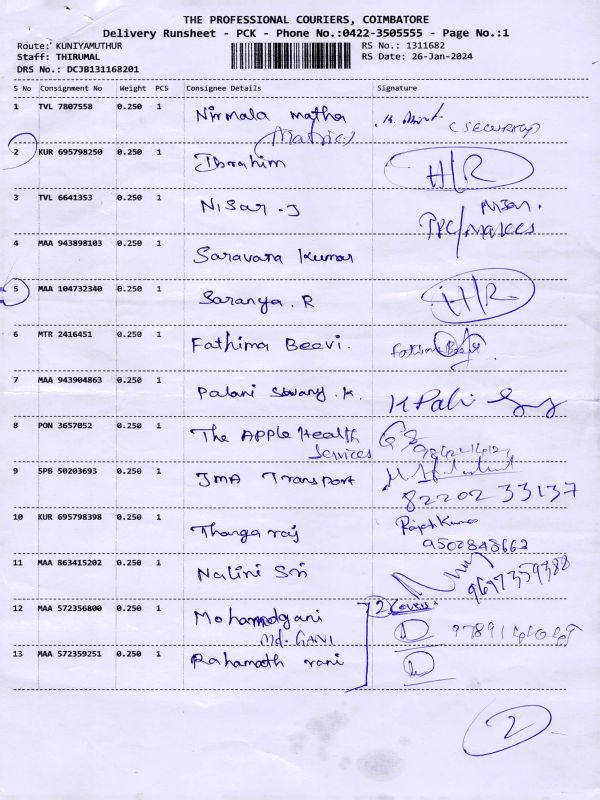 THE PROFESSIONAL COURIERS, COIMBATORE
Delivery Runsheet - PCK - Phone No.:0422-3505555 - Page No.:1
Route: KUNIYAMUTHUR RS No.: 1311682
Staff: THIRUMAL RS Date: 26-Jan-2024
DRS No.: DCJB131168201
S No Consignment No Weight PCS Consignee Details Signature
1 TVL 7807558 0.250 1 Nirmala Matha
(Matric) (SECURITY)
2 KUR 695798250 0.250 1 Ibrahim H/R
3 TVL 6641353 0.250 1 Nisar.J Nisar.
4 MAA 943898103 0.250 1 Saravana Kumar
5 MAA 104732340 0.250 1 Saranya.R H/R
6 MTR 2416451 0.250 1 Fathima Beevi. Fathima
7 MAA 943904863 0.250 1 Palani Swamy.K. K Palani
8 PON 3657052 0.250 1 The Apple Health
Services
9 SPB 50203693 0.250 1 JMA Transport
82202 33137
10 KUR 695798398 0.250 1 Thangaraj Rajesh Kumar
9502848662
11 MAA 863415202 0.250 1 Nalini Sri 9697359388
12 MAA 572356800 0.250 1 Mohamedgani 2 Covers
Md. GANI
13 MAA 572359251 0.250 1 Rahamath rani
2